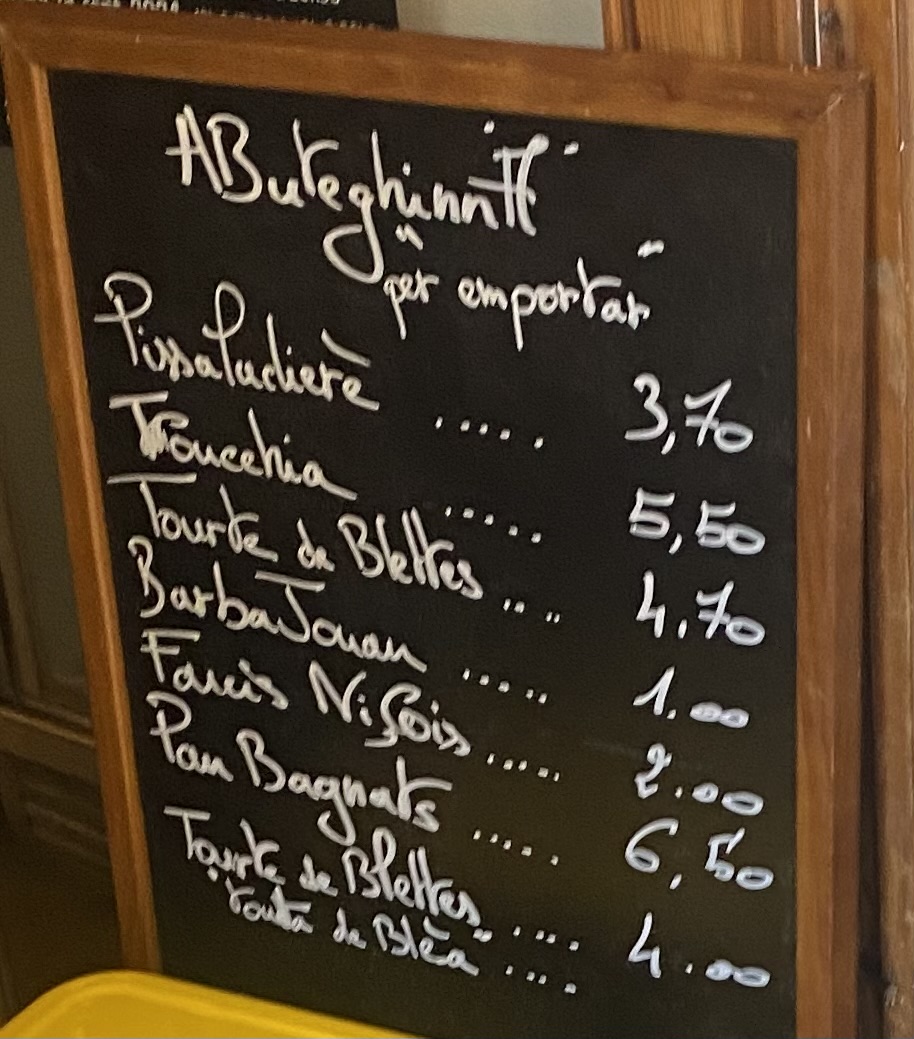 A Buteghinn "
" per emportar "
Pissaladière ..... 3,70
Troucchia ..... 5,50
Tourte de Blettes .... 4,70
BarbaJouan ..... 1.00
Farcis Niçois ..... 2.00
Pan Bagnats ..... 6,50
Tourte de Blettes .... 4.00
"Tourta de Blea" ....